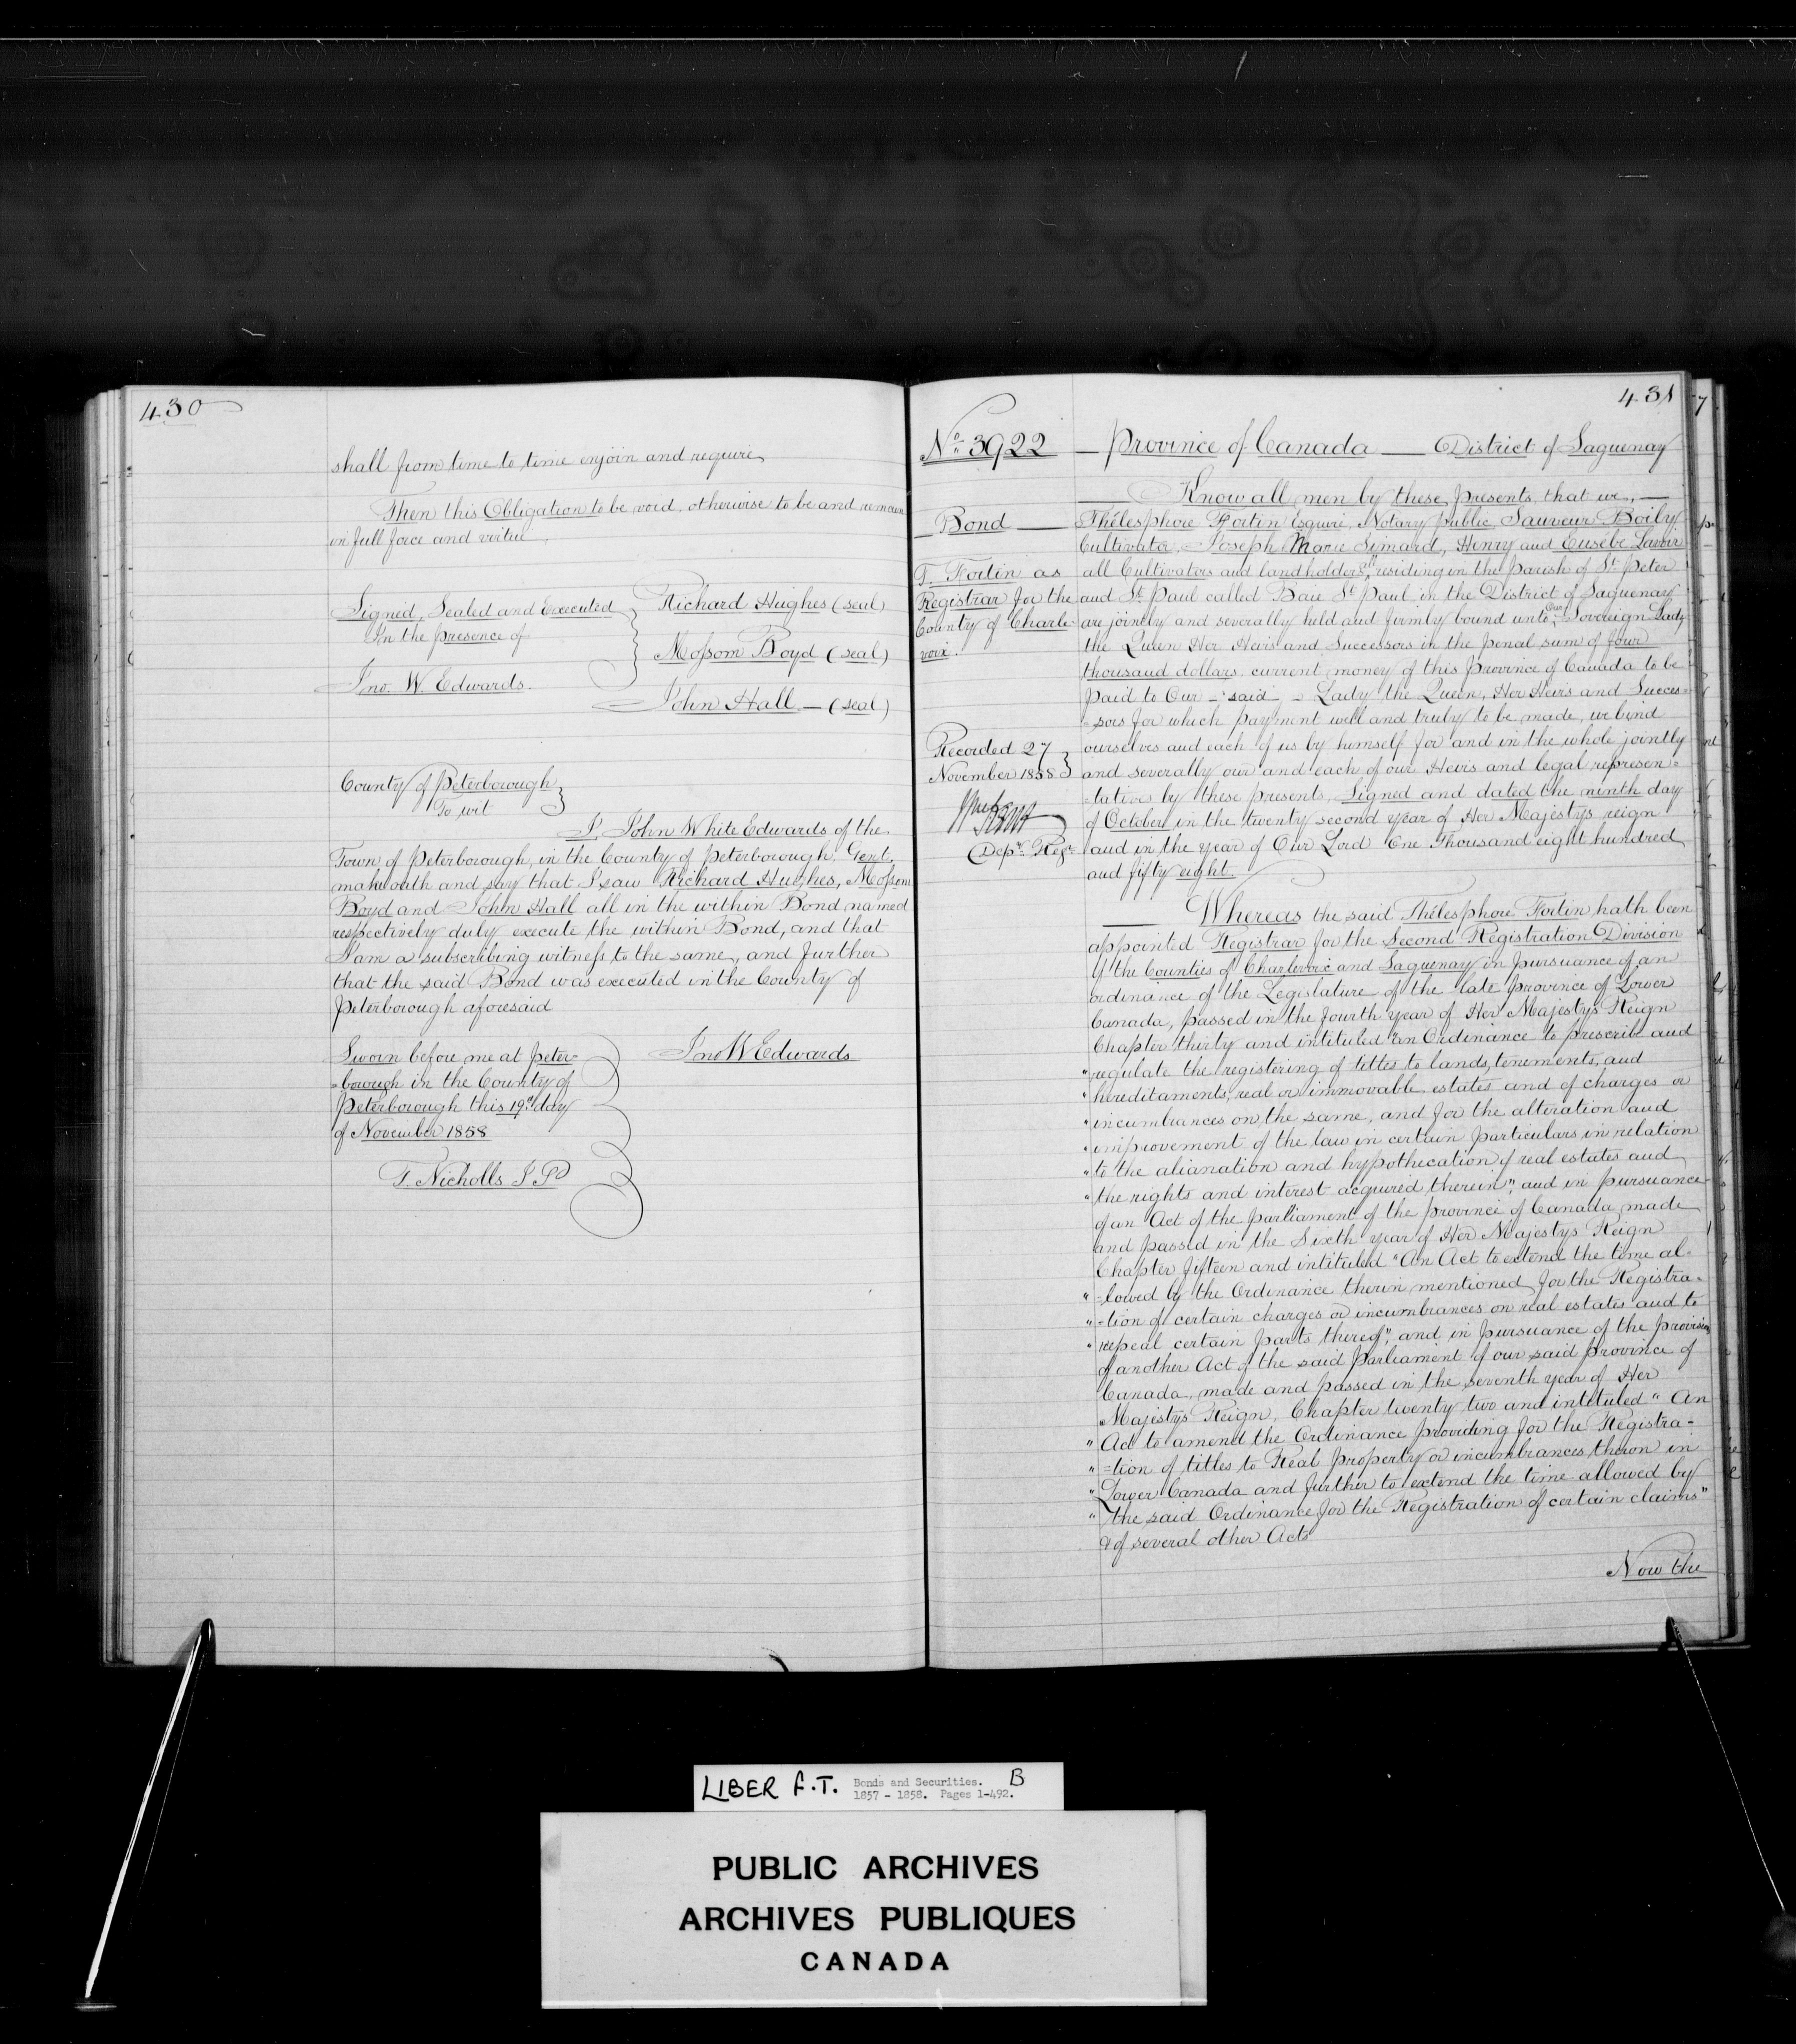 430
shall from time to time enjoin and require
Then this Obligation to be void, otherwise to be and remain
in full force and virtue.
Signed, Sealed and Executed
In the presence of
Jno. W. Edwards.
Richard Hughes (seal)
Mossom Boyd (seal)
John Hall — (seal)
County of Peterborough
To wit
I, John White Edwards of the
Town of Peterborough, in the County of Peterborough, Gent.
make oath and say that I saw Richard Hughes, Mossom
Boyd and John Hall all in the within Bond named
respectively duly execute the within Bond, and that
I am a subscribing witness to the same, and further
that the said Bond was executed in the County of
Peterborough aforesaid
Sworn before me at Peter-
-borough in the County of
Peterborough this 19th day
of November 1858
Jno W Edwards
T. Nicholls J.P.
431
No. 3922 — Province of Canada — District of Saguenay
Bond —
T. Fortin as
Registrar for the
County of Charle-
voix.
Recorded 27
November 1858
Depy. Regr.
Know all men by these presents, that we, —
Thélesphore Fortin Esquire, Notary public, Sauveur Boily
Cultivator, Joseph Marie Simard, Henry and Eusèbe
all Cultivators and landholders, residing in the Parish of St. Peter
and St. Paul called Baie St. Paul in the District of Saguenay
are jointly and severally held and firmly bound unto Our Sovereign Lady
the Queen Her Heirs and Successors in the penal sum of four
thousand dollars, current money of this Province of Canada to be
paid to Our - said - Lady the Queen, Her Heirs and Succes-
-sors for which payment well and truly to be made, we bind
ourselves and each of us by himself for and in the whole jointly
and severally our and each of our Heirs and legal represen-
-tatives by these presents. Signed and dated the ninth day
of October in the twenty second year of Her Majestys reign
and in the year of Our Lord One Thousand eight hundred
and fifty eight.
Whereas the said Thélesphore Fortin hath been
appointed Registrar for the Second Registration Division
of the Counties of Charlevoix and Saguenay in pursuance of an
ordinance of the Legislature of the late Province of Lower
Canada, passed in the fourth year of Her Majestys Reign
Chapter thirty and intituled "An Ordinance to prescribe and
"regulate the registering of titles to lands, tenements, and
"hereditaments, real or immovable estates and of charges or
"incumbrances on the same, and for the alteration and
"improvement of the law in certain particulars in relation
"to the alianation and hypothecation of real estates and
"the rights and interest acquired therein", and in pursuance
of an Act of the Parliament of the Province of Canada made
and passed in the Sixth year of Her Majestys Reign
Chapter fifteen and intituled "An Act to extend the time al-
"-lowed by the Ordinance therein mentioned for the Registra-
"-tion of certain charges or incumbrances on real estates and to
"repeal certain parts thereof", and in pursuance of the provision
of another Act of the said Parliament of our said Province of
Canada, made and passed in the seventh year of Her
Majestys Reign, Chapter twenty two and intituled "An
"Act to amend the Ordinance providing for the Registra-
"-tion of titles to Real Property or incumbrances thereon in
"Lower Canada and further to extend the time allowed by
"the said Ordinance for the Registration of certain claims"
& of several other Acts
Now the
LIBER F.T. Bonds and Securities. B
1857 - 1858. Pages 1-492.
PUBLIC ARCHIVES
ARCHIVES PUBLIQUES
CANADA